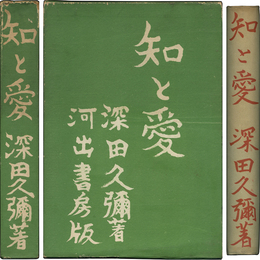 知と愛
深田久彌著
知と愛
深田久彌著
河出書房版
知と愛
深田久彌著